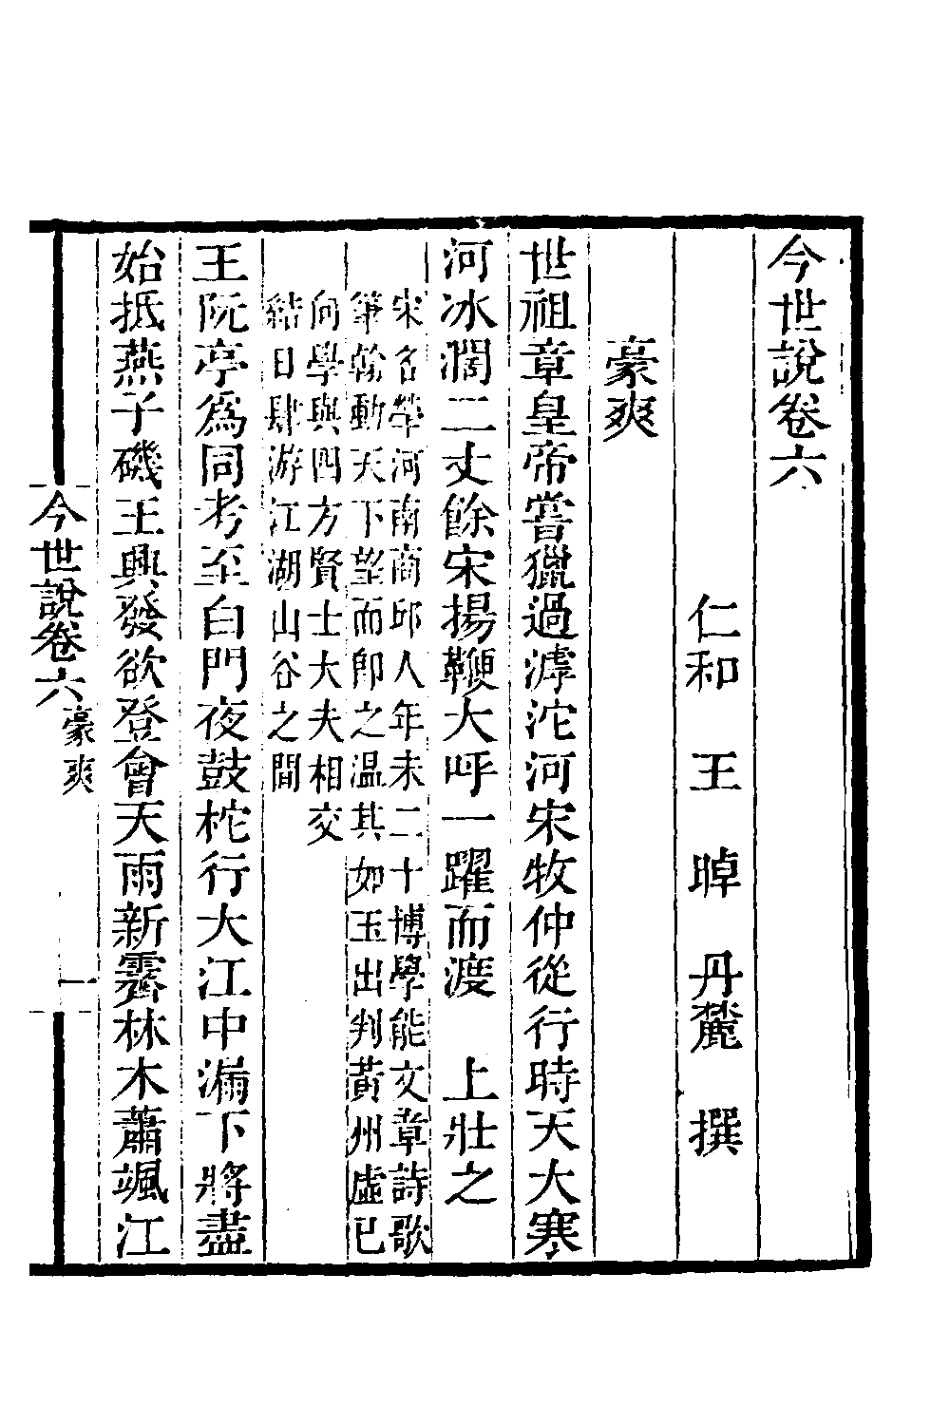 今世說卷六
仁和 王晫 丹麓 撰
豪爽
世祖章皇帝嘗獵過滹沱河宋牧仲從行時天大寒
河冰濶二丈餘宋揚鞭大呼一躍而渡 上壯之
宋名犖河南商邱人年未二十博學能文章詩歌
筆翰動天下望而卽之温其如玉出判黃州虛已
向學與四方賢士大夫相交
結日肆游江湖山谷之間
王阮亭爲同考至白門夜鼓柁行大江中漏下將盡
始抵燕子磯王興發欲登會天雨新霽林木蕭颯江
今世說卷六 豪爽 一